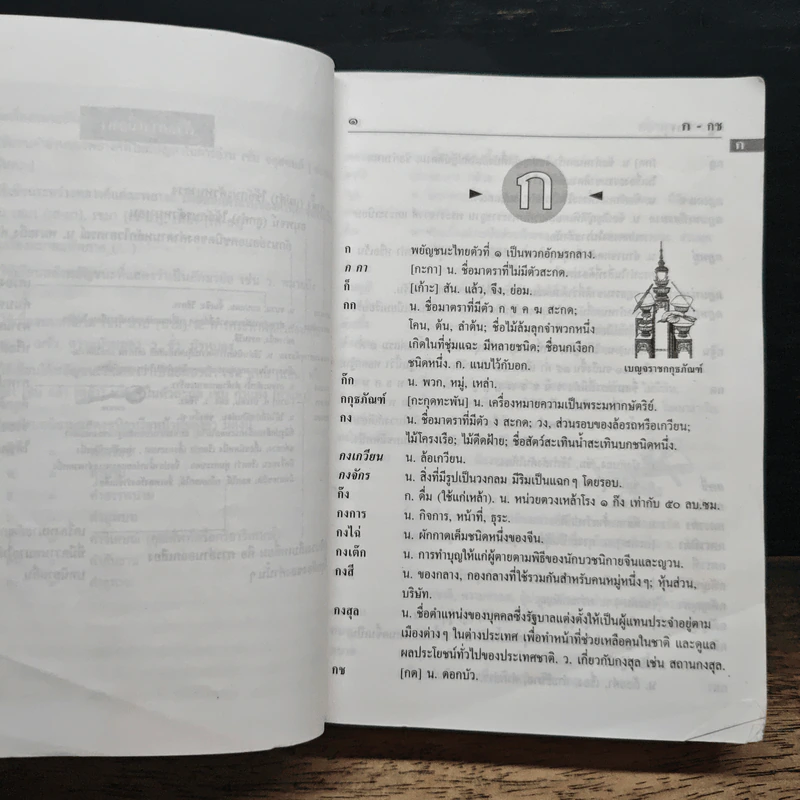 ๑ ก - กช
ก
ก
ก พยัญชนะไทยตัวที่ ๑ เป็นพวกอักษรกลาง.
ก กา [กะกา] น. ชื่อมาตราที่ไม่มีตัวสะกด.
ก็ [เก้าะ] สัน. แล้ว, จึง, ย่อม.
กก น. ชื่อมาตราที่มีตัว ก ข ค ฆ สะกด;
โคน, ต้น, ลำต้น; ชื่อไม้ล้มลุกจำพวกหนึ่ง
เกิดในที่ชุ่มแฉะ มีหลายชนิด; ชื่อนกเงือก
ชนิดหนึ่ง. ก. แนบไว้กับอก.
เบญจราชกกุธภัณฑ์
ก๊ก น. พวก, หมู่, เหล่า.
กกุธภัณฑ์ [กะกุดทะพัน] น. เครื่องหมายความเป็นพระมหากษัตริย์.
กง น. ชื่อมาตราที่มีตัว ง สะกด; วง, ส่วนรอบของล้อรถหรือเกวียน;
ไม้โครงเรือ; ไม้ดีดฝ้าย; ชื่อสัตว์สะเทินน้ำสะเทินบกชนิดหนึ่ง.
กงเกวียน น. ล้อเกวียน.
กงจักร น. สิ่งที่มีรูปเป็นวงกลม มีริมเป็นแฉก ๆ โดยรอบ.
ก๊ง ก. ดื่ม (ใช้แก่เหล้า). น. หน่วยตวงเหล้าโรง ๑ ก๊ง เท่ากับ ๕๐ ลบ.ซม.
กงการ น. กิจการ, หน้าที่, ธุระ.
กงไฉ่ น. ผักกาดเค็มชนิดหนึ่งของจีน.
กงเต๊ก น. การทำบุญให้แก่ผู้ตายตามพิธีของนักบวชนิกายจีนและญวน.
กงสี น. ของกลาง, กองกลางที่ใช้รวมกันสำหรับคนหมู่หนึ่ง ๆ; หุ้นส่วน,
บริษัท.
กงสุล น. ชื่อตำแหน่งของบุคคลซึ่งรัฐบาลแต่งตั้งให้เป็นผู้แทนประจำอยู่ตาม
เมืองต่าง ๆ ในต่างประเทศ เพื่อทำหน้าที่ช่วยเหลือคนในชาติ และดูแล
ผลประโยชน์ทั่วไปของประเทศชาติ. ว. เกี่ยวกับกงสุล เช่น สถานกงสุล.
กช [กด] น. ดอกบัว.